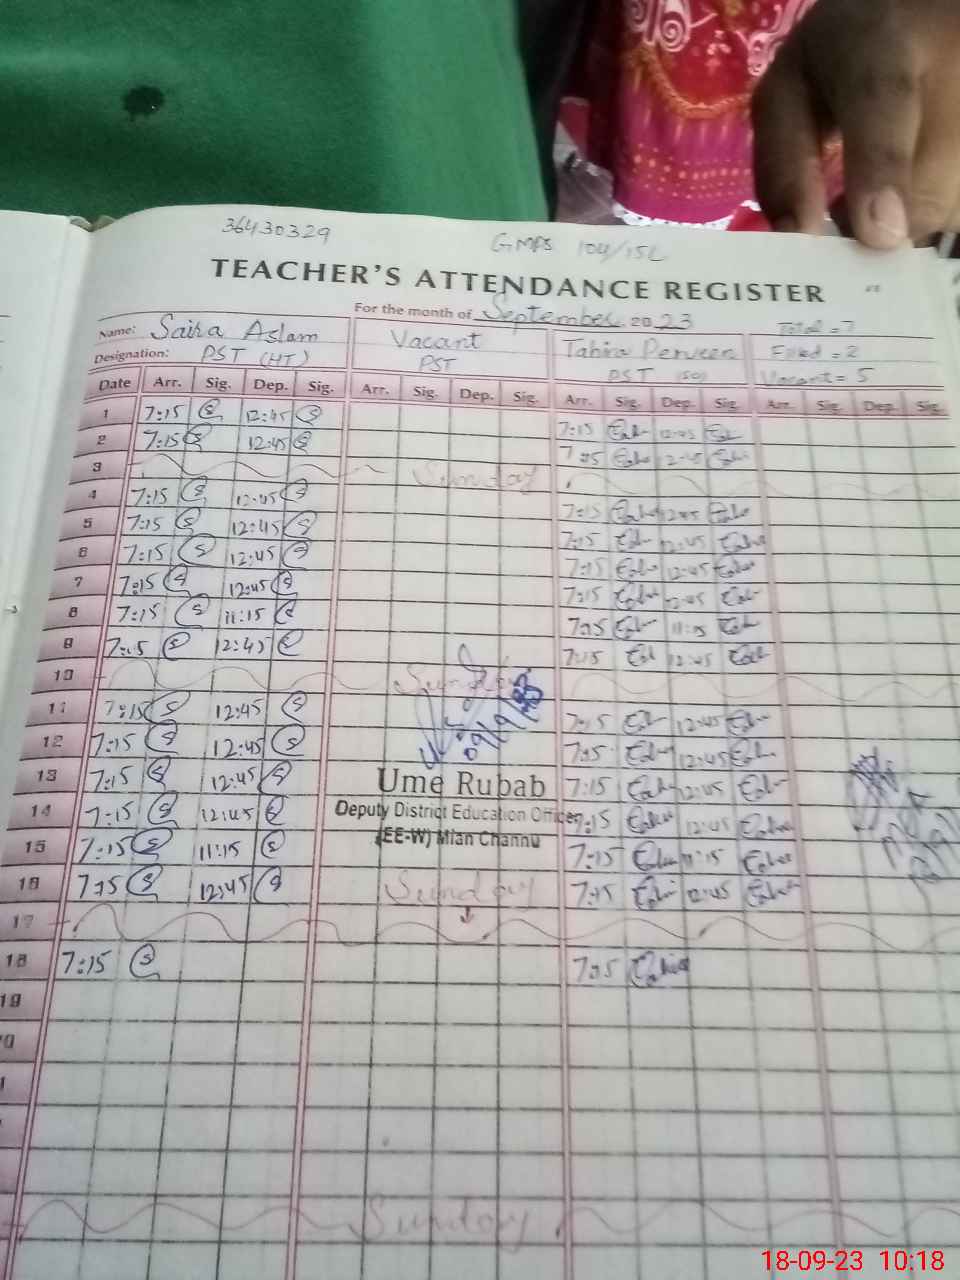 36430329
GMPS 104/15L
TEACHER'S ATTENDANCE REGISTER
For the month of September 2023
Total = 7
Name: Saira Aslam Vacant Tahira Perveen Filled = 2
Designation: PST (HT) PST PST Vacant = 5
Date Arr. Sig. Dep. Sig. Arr. Sig. Dep. Sig. Arr. Sig. Dep. Sig. Arr. Sig. Dep. Sig.
1 7:15 S 12:45 S 7:15 12:45
2 7:15 S 12:45 S 7:15 12:45
3 Sunday
4 7:15 S 12:45 S 7:15 12:45
5 7:15 S 12:45 S 7:15 12:45
6 7:15 S 12:45 S 7:15 12:45
7 7:15 S 12:45 S 7:15 12:45
8 7:15 S 11:15 S 7:15 11:15
9 7:15 S 12:45 S 7:15 12:45
10 Sunday
11 7:15 S 12:45 S 7:15 12:45
12 7:15 S 12:45 S 7:15 12:45
13 7:15 S 12:45 S Ume Rubab 7:15 12:45
14 7:15 S 12:45 S Deputy District Education Officer 7:15 12:45
15 7:15 S 11:15 S (EE-W) Mian Channu 7:15 11:15
16 7:15 S 12:45 S Sunday 7:15 12:45
17
18 7:15 S 7:15
19
Sunday
18-09-23 10:18